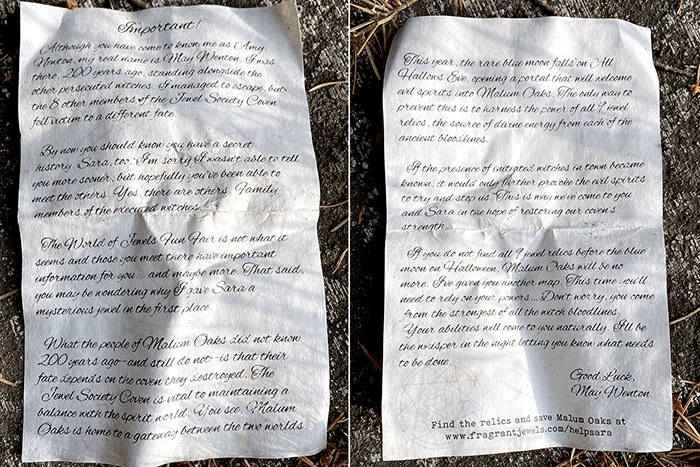 Important!
Although you have come to know me as Amy
Newton, my real name is May Wenton. I was
there, 200 years ago, standing alongside the
other persecuted witches. I managed to escape, but
the 8 other members of the Jewel Society Coven
fell victim to a different fate.
By now you should know you have a secret
history. Sara, too. I'm sorry I wasn't able to tell
you more sooner, but hopefully you've been able to
meet the others. Yes, there are others. Family
members of the executed witches.
The World of Jewels Fun Fair is not what it
seems and those you meet there have important
information for you... and maybe more. That said,
you may be wondering why I gave Sara a
mysterious jewel in the first place.
What the people of Malum Oaks did not know
200 years ago—and still do not—is that their
fate depends on the coven they destroyed. The
Jewel Society Coven is vital to maintaining a
balance with the spirit world. You see, Malum
Oaks is home to a gateway between the two worlds.
This year, the rare blue moon falls on All
Hallows Eve, opening a portal that will welcome
evil spirits into Malum Oaks. The only way to
prevent this is to harness the power of all 9 jewel
relics, the source of divine energy from each of the
ancient bloodlines.
If the presence of initiated witches in town became
known, it would only further provoke the evil spirits
to try and stop us. This is why we've come to you
and Sara in the hope of restoring our coven's
strength.
If you do not find all 9 jewel relics before the blue
moon on Halloween, Malum Oaks will be no
more. I've given you another map. This time you'll
need to rely on your powers... Don't worry, you come
from the strongest of all the witch bloodlines.
Your abilities will come to you naturally. I'll be
the whisper in the night letting you know what needs
to be done.
Good Luck,
May Wenton
Find the relics and save Malum Oaks at
www.fragrantjewels.com/helpsara